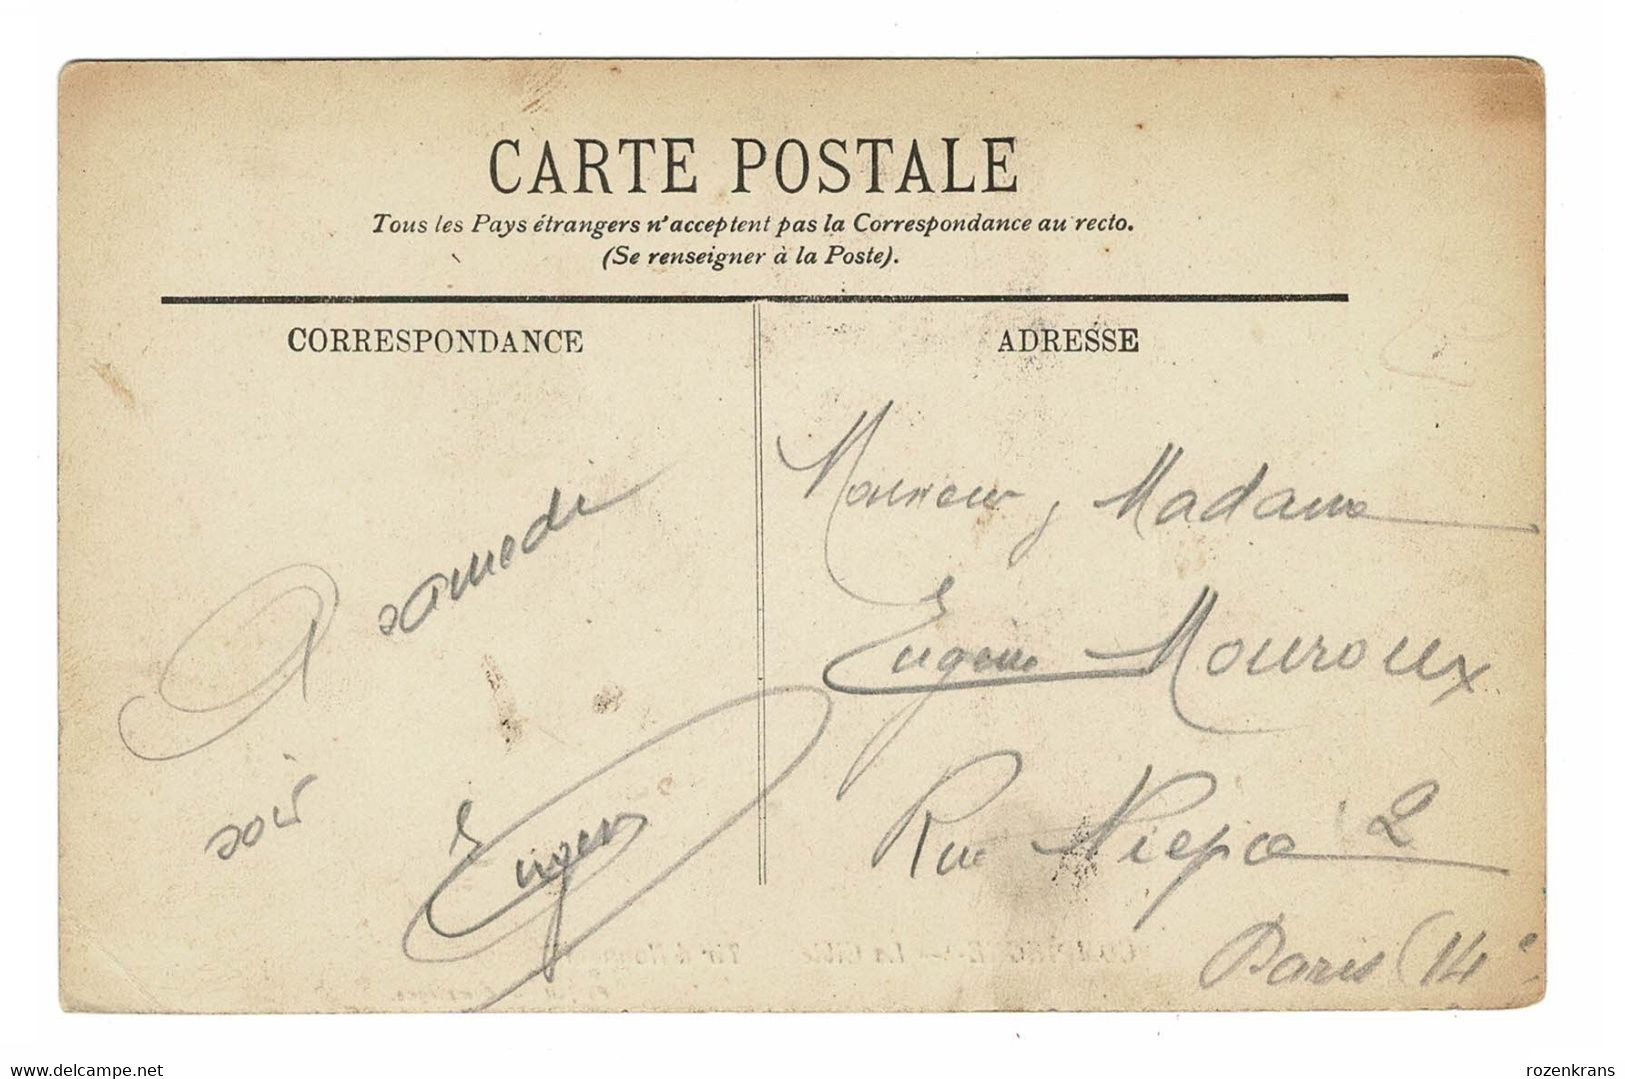 CARTE POSTALE
Tous les Pays étrangers n'acceptent pas la Correspondance au recto.
(Se renseigner à la Poste).
CORRESPONDANCE
A samedi
soir
ADRESSE
Monsieur, Madame
Eugène Mouroux
Rue Niepce 2
Paris (14e
www.delcampe.net
rozenkrans